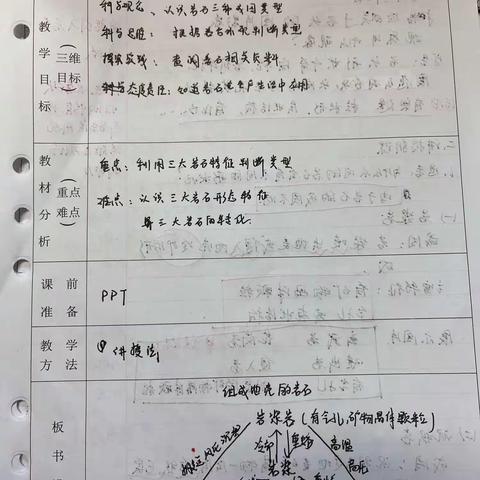 科学观念、认识岩石三种成因类型
科学思维： 根据岩石状况判断类型
探究实践： 查阅岩石相关资料
科学态度责任：知道岩石在生产生活中应用
教学目标
三维目标
重点：利用三大岩石特征判断类型
难点：认识三大岩石形态特征
与三大岩石的转化
教材分析
（重点难点）
课前准备
PPT
教学方法
①讲授法
板书
组成地壳的岩石
岩浆岩（有气孔,矿物晶体颗粒）
冷却
重熔
高温
岩浆
高压